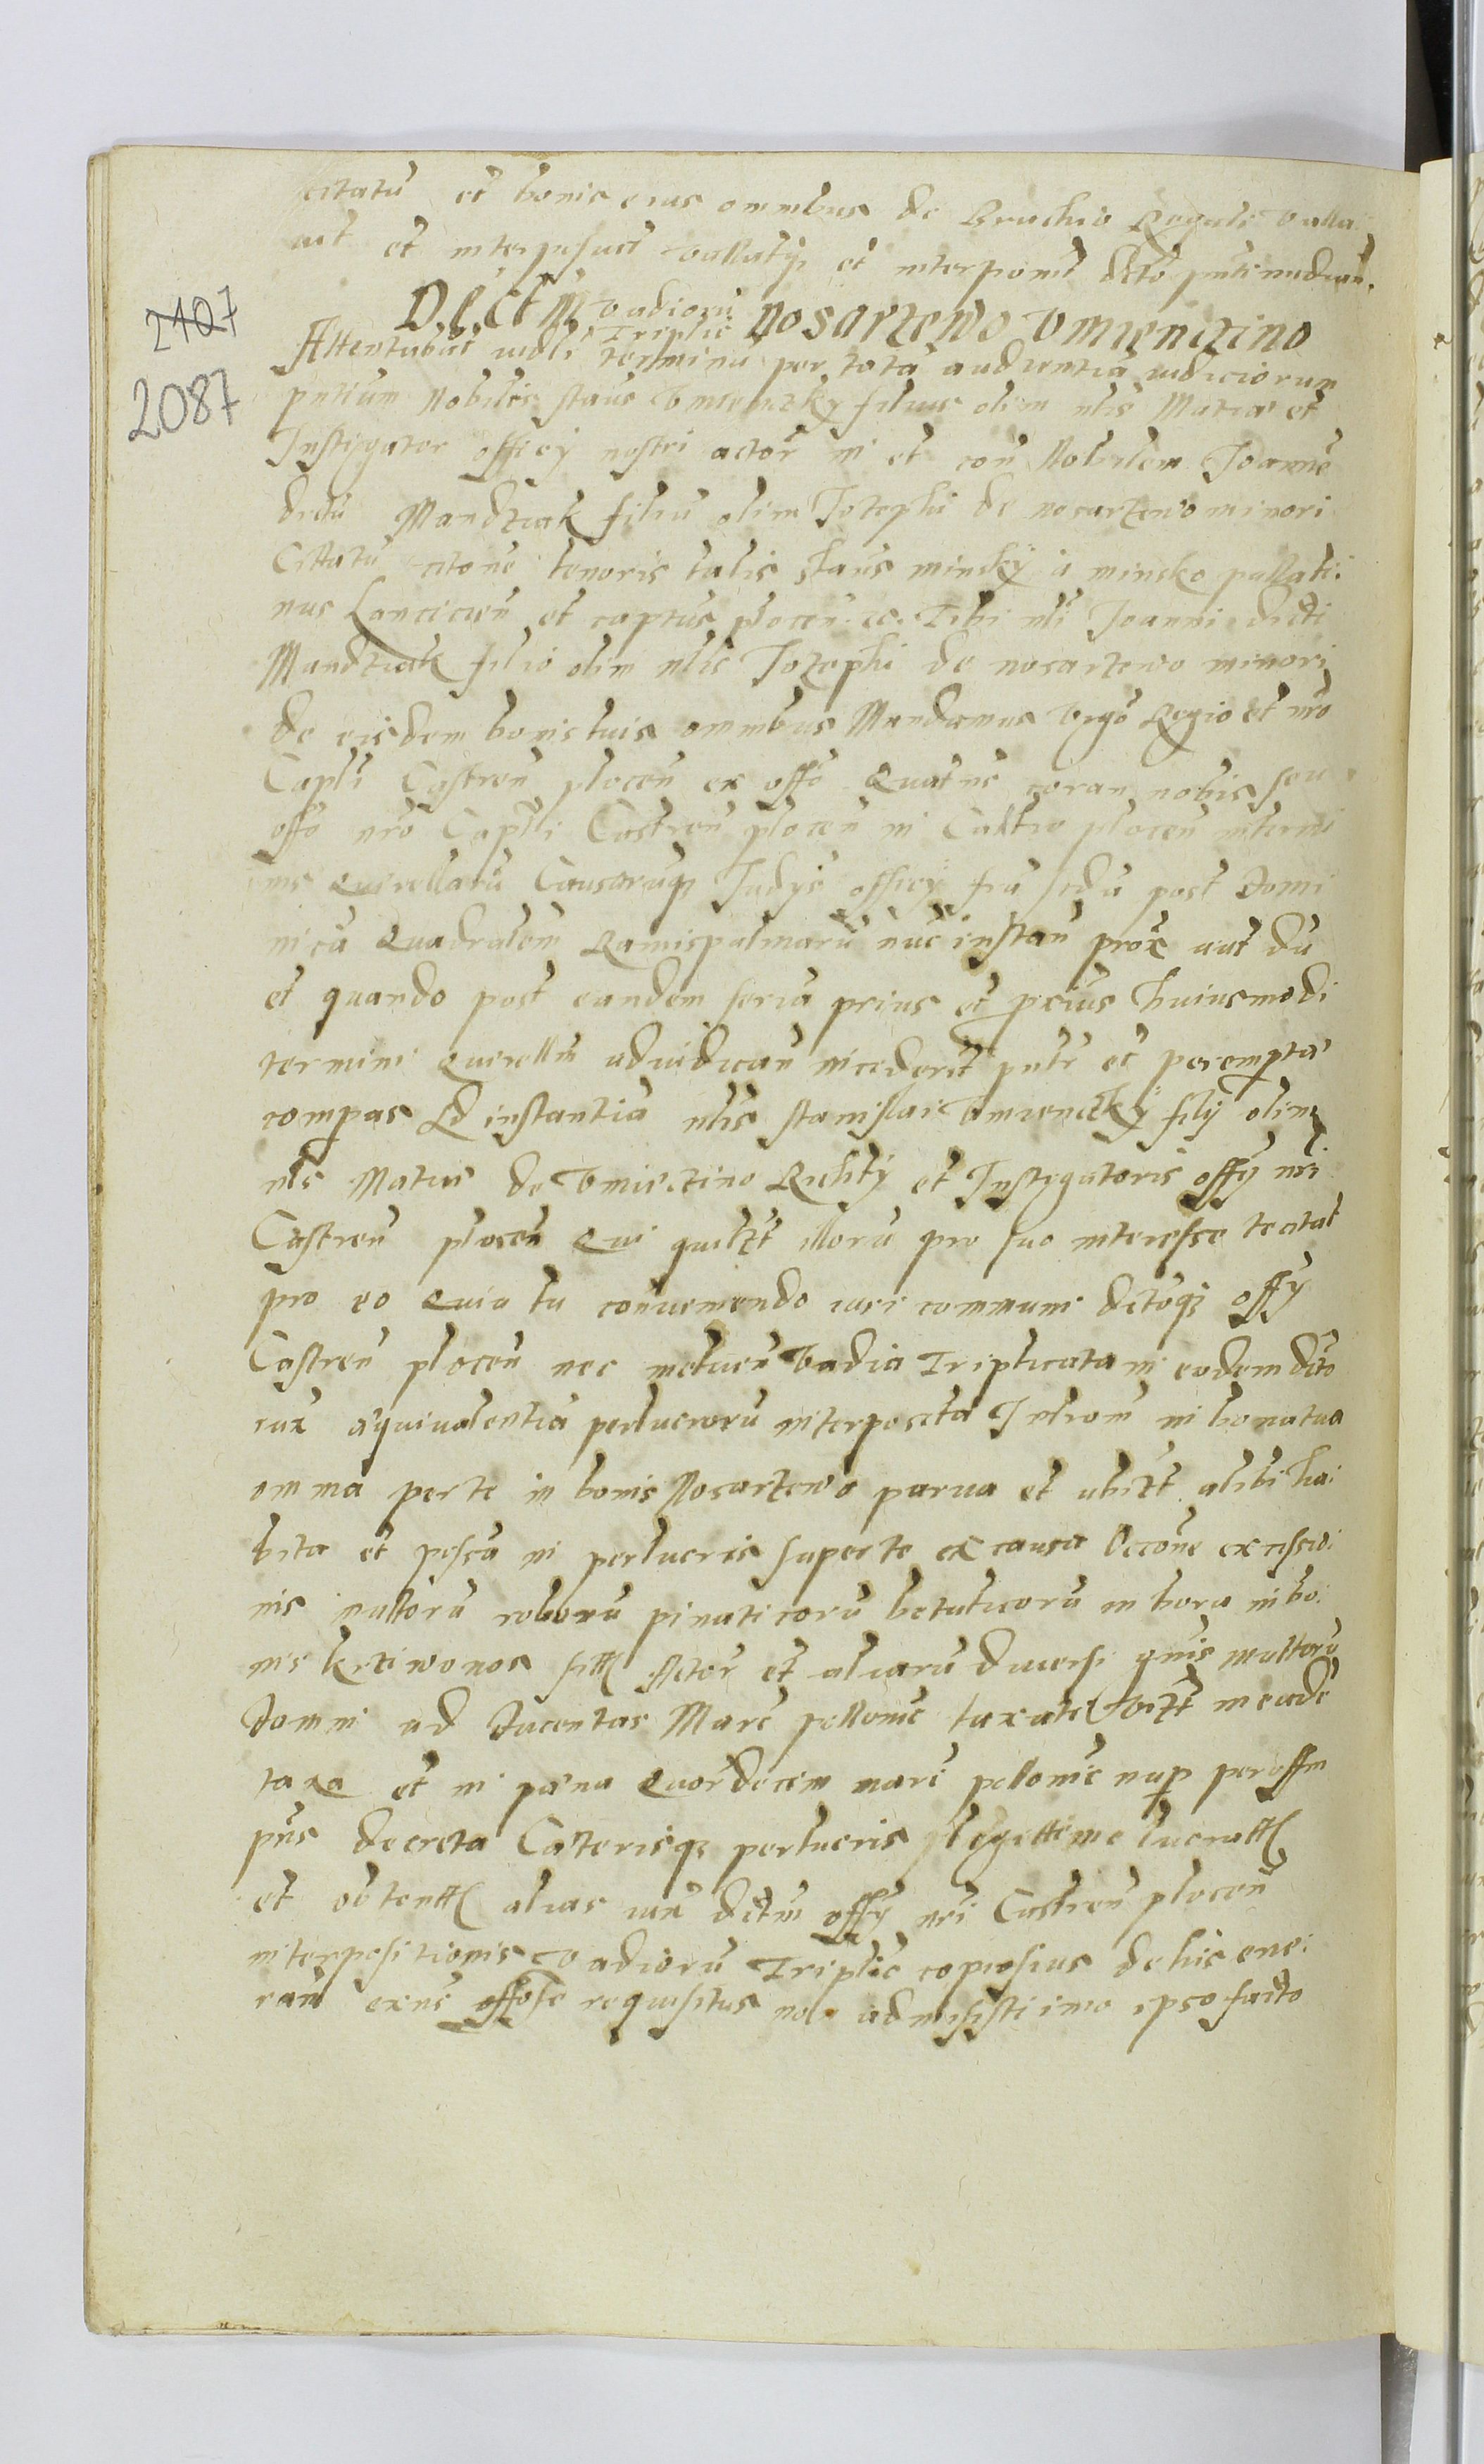 citatũ et bonis eius omnibus de Bruchio Regali valla
uit et interposuit vallatqз et interponit dcto pntĩ mediañ.
Decm vadiorũ Triplic Nosarzewo Vmieniczino
Attentabat iudli terminũ per totã audientiã iudiciorum
pntium Nobilis Staũs Vmieniczky filius olim nlis Matiæ et
Instigator officy nostri actor̃ in et con̄ Nobilem Joannẽ
dictũ Mandziak filiũ olim Jozephi de nosarzewo minori
Cittatũ citone tenoris talis Staũs minsky a minsko pallati:
nus Lancicien̄ et captũs plocen̄ ec. Tibi nli Joanni dicti
Mandziak filio olim nlis Jozephi de nosarzewo minori
de eisdem bonis tuis omnibus Mandamus vigo Regio et nro
Capli Castren̄ plocen̄ ex offo Quatns coram nobis seu
offo nro Caplli Castren̄ plocen̄ in Castro plocen̄ in termi
nis Querellarũ Causarũqз Judys officy fria scda post Domi
nicã Quadralem Ramispalmarũ nũc instan̄ prox̃ aut dũ
et quando post eandem feriã prius et pxius huiusmodi
termini querellar̃ adiudican̄ inciderit pntr et perempta
compas Ad instantiã nlis Stanislai Vmieniczky fily olim
nlis Matiæ de Vmieczino Relicty et Instigatoris offy nri
Castren̄ plocen̄ Qui quilzt illorũ pro suo interesse te citat
pro eo Quia tu conueniendo iuri communi dctoqз offy
Castren̄ plocen̄ nec metuen̄ Vadia Triplicata in eodem dcto
iux̃ æquiualentiã perlucrorũ interposita Introm̃ in bona tua
omnia per te in bonis Nosarzewo parua et ubilzt alibi ha:
bita et possa in perlucris super te ex causa occone excisio:
nis multorũ roborũ pinaticorũ betuticorũ in bora in bo:
nis krziwonos sitt Actor̃ et aliarũ diuersi gnis multarũ
Domni ad Ducentas Marc̃ pollonic̃ taxate Vizt in eade
taxa et in pæna Quor̃decem marc̃ polonic̃ nup̃ per offm
pns decreta Cæterisqз perlucris legittime lucratt
et obtentt alias iux̃ dctm offy nri Castren̄ plocen̄
interpositionis Vadiorũ Triplic̃ copiosius de his ene:
ran̄ exns offose requisitus no admisisti imo ipso facto
2107
2087